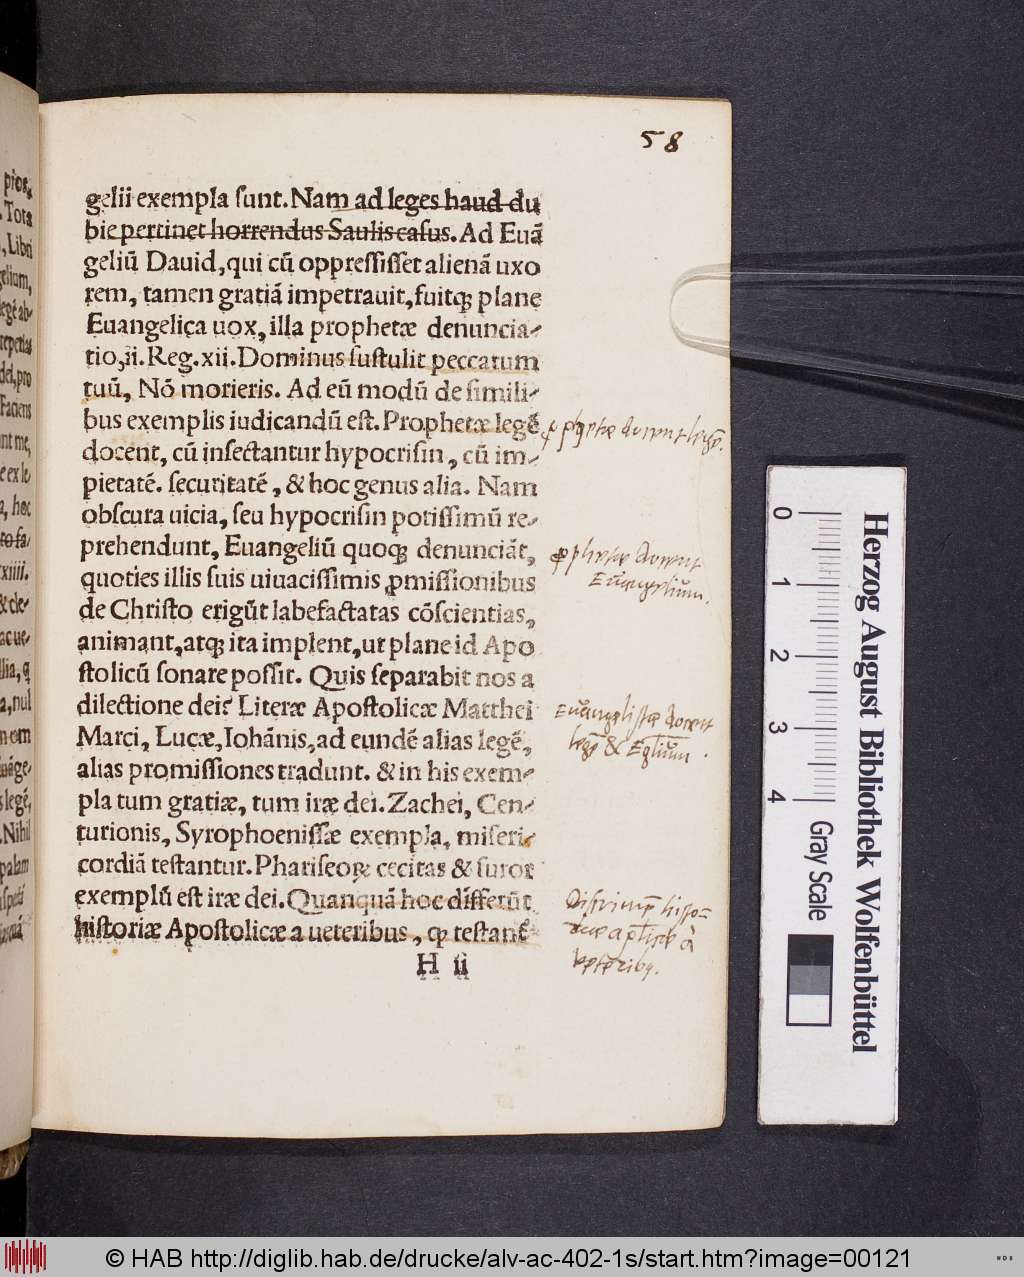 58
gelii exempla sunt. Nam ad leges haud du
bie pertinet horrendus Saulis casus. Ad Euã
geliũ Dauid, qui cũ oppressisset alienã uxo
rem, tamen gratiã impetrauit, fuitqꝫ plane
Euangelica uox, illa prophetæ denuncia-
tio, ii. Reg. xii. Dominus sustulit peccatum
tuũ, Nõ morieris. Ad eũ modũ de simili-
bus exemplis iudicandũ est. Prophetæ legẽ
docent, cũ insectantur hypocrisin, cũ im-
pietatẽ. securitatẽ, & hoc genus alia. Nam
obscura uicia, seu hypocrisin potissimũ re-
prehendunt, Euangeliũ quoqꝫ denunciãt,
quoties illis suis uiuacissimis ꝓmissionibus
de Christo erigũt labefactatas cõscientias,
animant, atqꝫ ita implent, ut plane id Apo
stolicũ sonare possit. Quis separabit nos a
dilectione dei? Literæ Apostolicæ Matthei
Marci, Lucæ, Iohãnis, ad eundẽ alias legẽ,
alias promissiones tradunt. & in his exem-
pla tum gratiæ, tum iræ dei. Zachei, Cen-
turionis, Syrophoenissæ exempla, miseri-
cordiã testantur. Phariseoꝝ cecitas & furor
exemplũ est iræ dei. Quanquã hoc differũt
historiæ Apostolicæ a ueteribus, qꝫ testant
H ii
ꝓphetæ docent legẽ.
ꝓphetæ docent
Euangelium.
Euangelistæ docent
legẽ & Eglium.
Discrimẽ histo=
riæ aptlicæ à
ueteribq.
pios,
Tota
, Libri
gelium,
dei, pro
Faciens
nt me,
e ex le
a, hoc
to fa-
xiiii.
& cle-
ac ue-
a, nul
. Nihil
palam
0 1 2 3 4
Herzog August Bibliothek Wolfenbüttel
Gray Scale
© HAB http://diglib.hab.de/drucke/alv-ac-402-1s/start.htm?image=00121